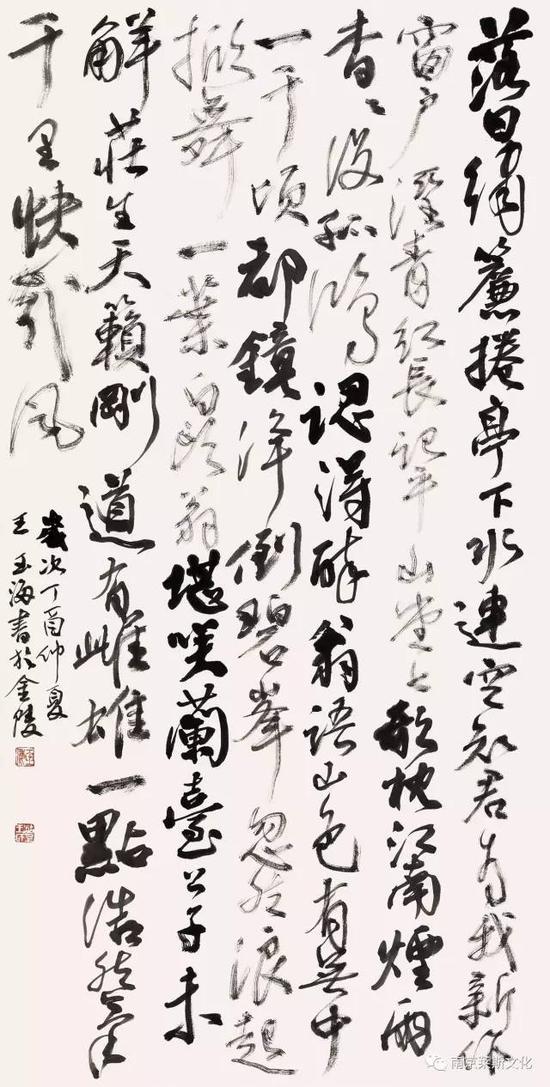 落日繡簾捲亭下水連空知君為我新作
窗戶溼青紅長記平山堂上欹枕江南煙雨
杳〻沒孤鴻認得醉翁語山色有無中
一千頃都鏡淨倒碧峯忽然浪起
掀舞一葉白頭翁堪咲蘭臺公子未
解莊生天籟剛道有雌雄一點浩然氣
千里快哉風
歲次丁酉仲夏
王玉海書於金陵
南京莱斯文化